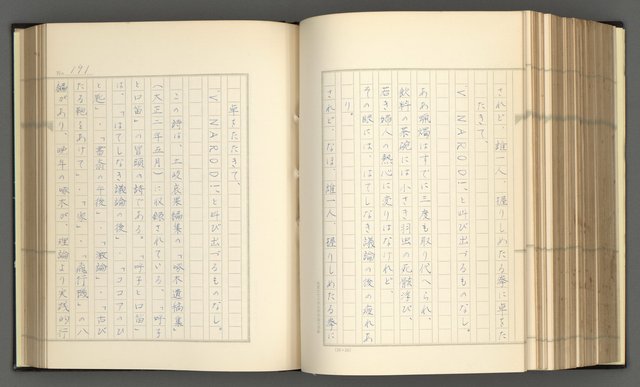 されど、誰一人、握りしめたる拳に卓をた
たきて、
'V NAROD!'と叫び出づるものなし。
ああ蝋燭はすでに三度も取り代へられ、
飲料の茶碗には小さき羽虫の死骸浮び、
若き婦人の熱心に変りはなけれど、
その眼には、はてしなき議論の後の疲れあ
り。
されど、なほ、誰一人、握りしめたる拳に
No. 191
卓をたたきて、
'V NAROD!'と叫び出づるものなし。
この詩は、土岐哀果編集の「啄木遺稿集」
(大正二年五月)に収録されている。「呼子
と口笛」の冒頭の詩である。「呼子と口笛」
は、「はてしなき議論の後」・「ココアのひ
と匙」・「書斎の午後」・「激論」・「古び
たる鞄をあけて」・「家」・「飛行機」の八
編があり、晩年の啄木が、理論より実践的行